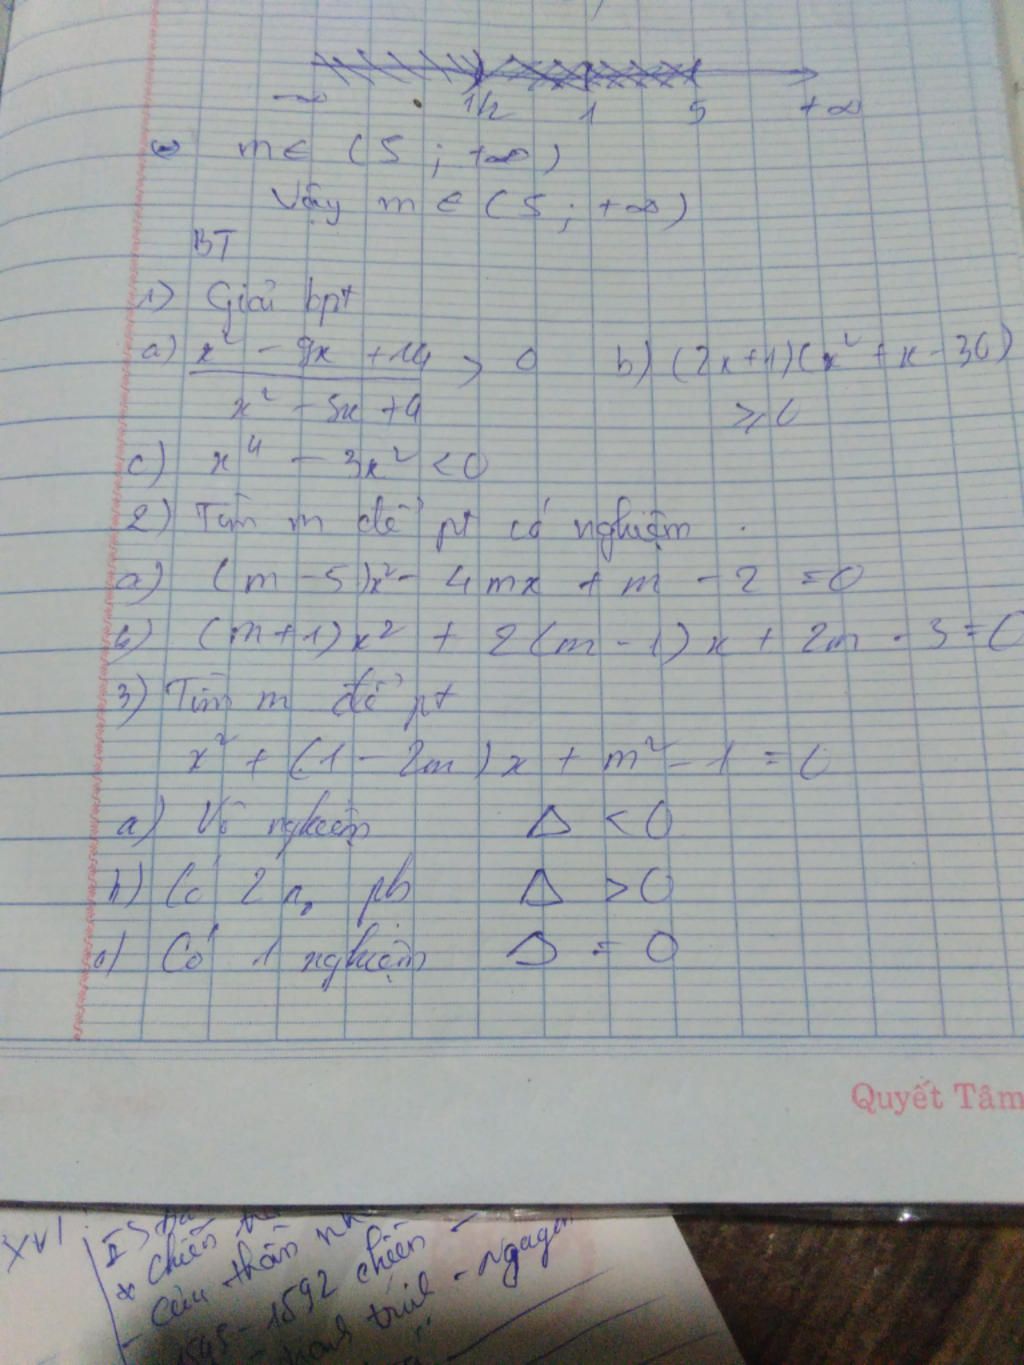 -∞ 1/2 1 5 +∞
m ∈ (5 ; +∞)
Vậy m ∈ (5 ; +∞)
BT
1) Giải bpt
a) x² - 9x + 14 / x² - 5x + 4 > 0 b) (2x+1)(x² + x - 30)
≥ 0
c) x⁴ - 3x² < 0
2) Tìm m để pt có nghiệm .
a) (m - 5)x² - 4mx + m - 2 = 0
b) (m+1)x² + 2(m-1)x + 2m - 3 = 0
3) Tìm m để pt
x² + (1 - 2m)x + m² - 1 = 0
a) Vô nghiệm Δ < 0
b) Có 2 n₀ pb Δ > 0
c) Có 1 nghiệm Δ = 0
Quyết Tâm
XVI
* chiến
- 1592 chiến -